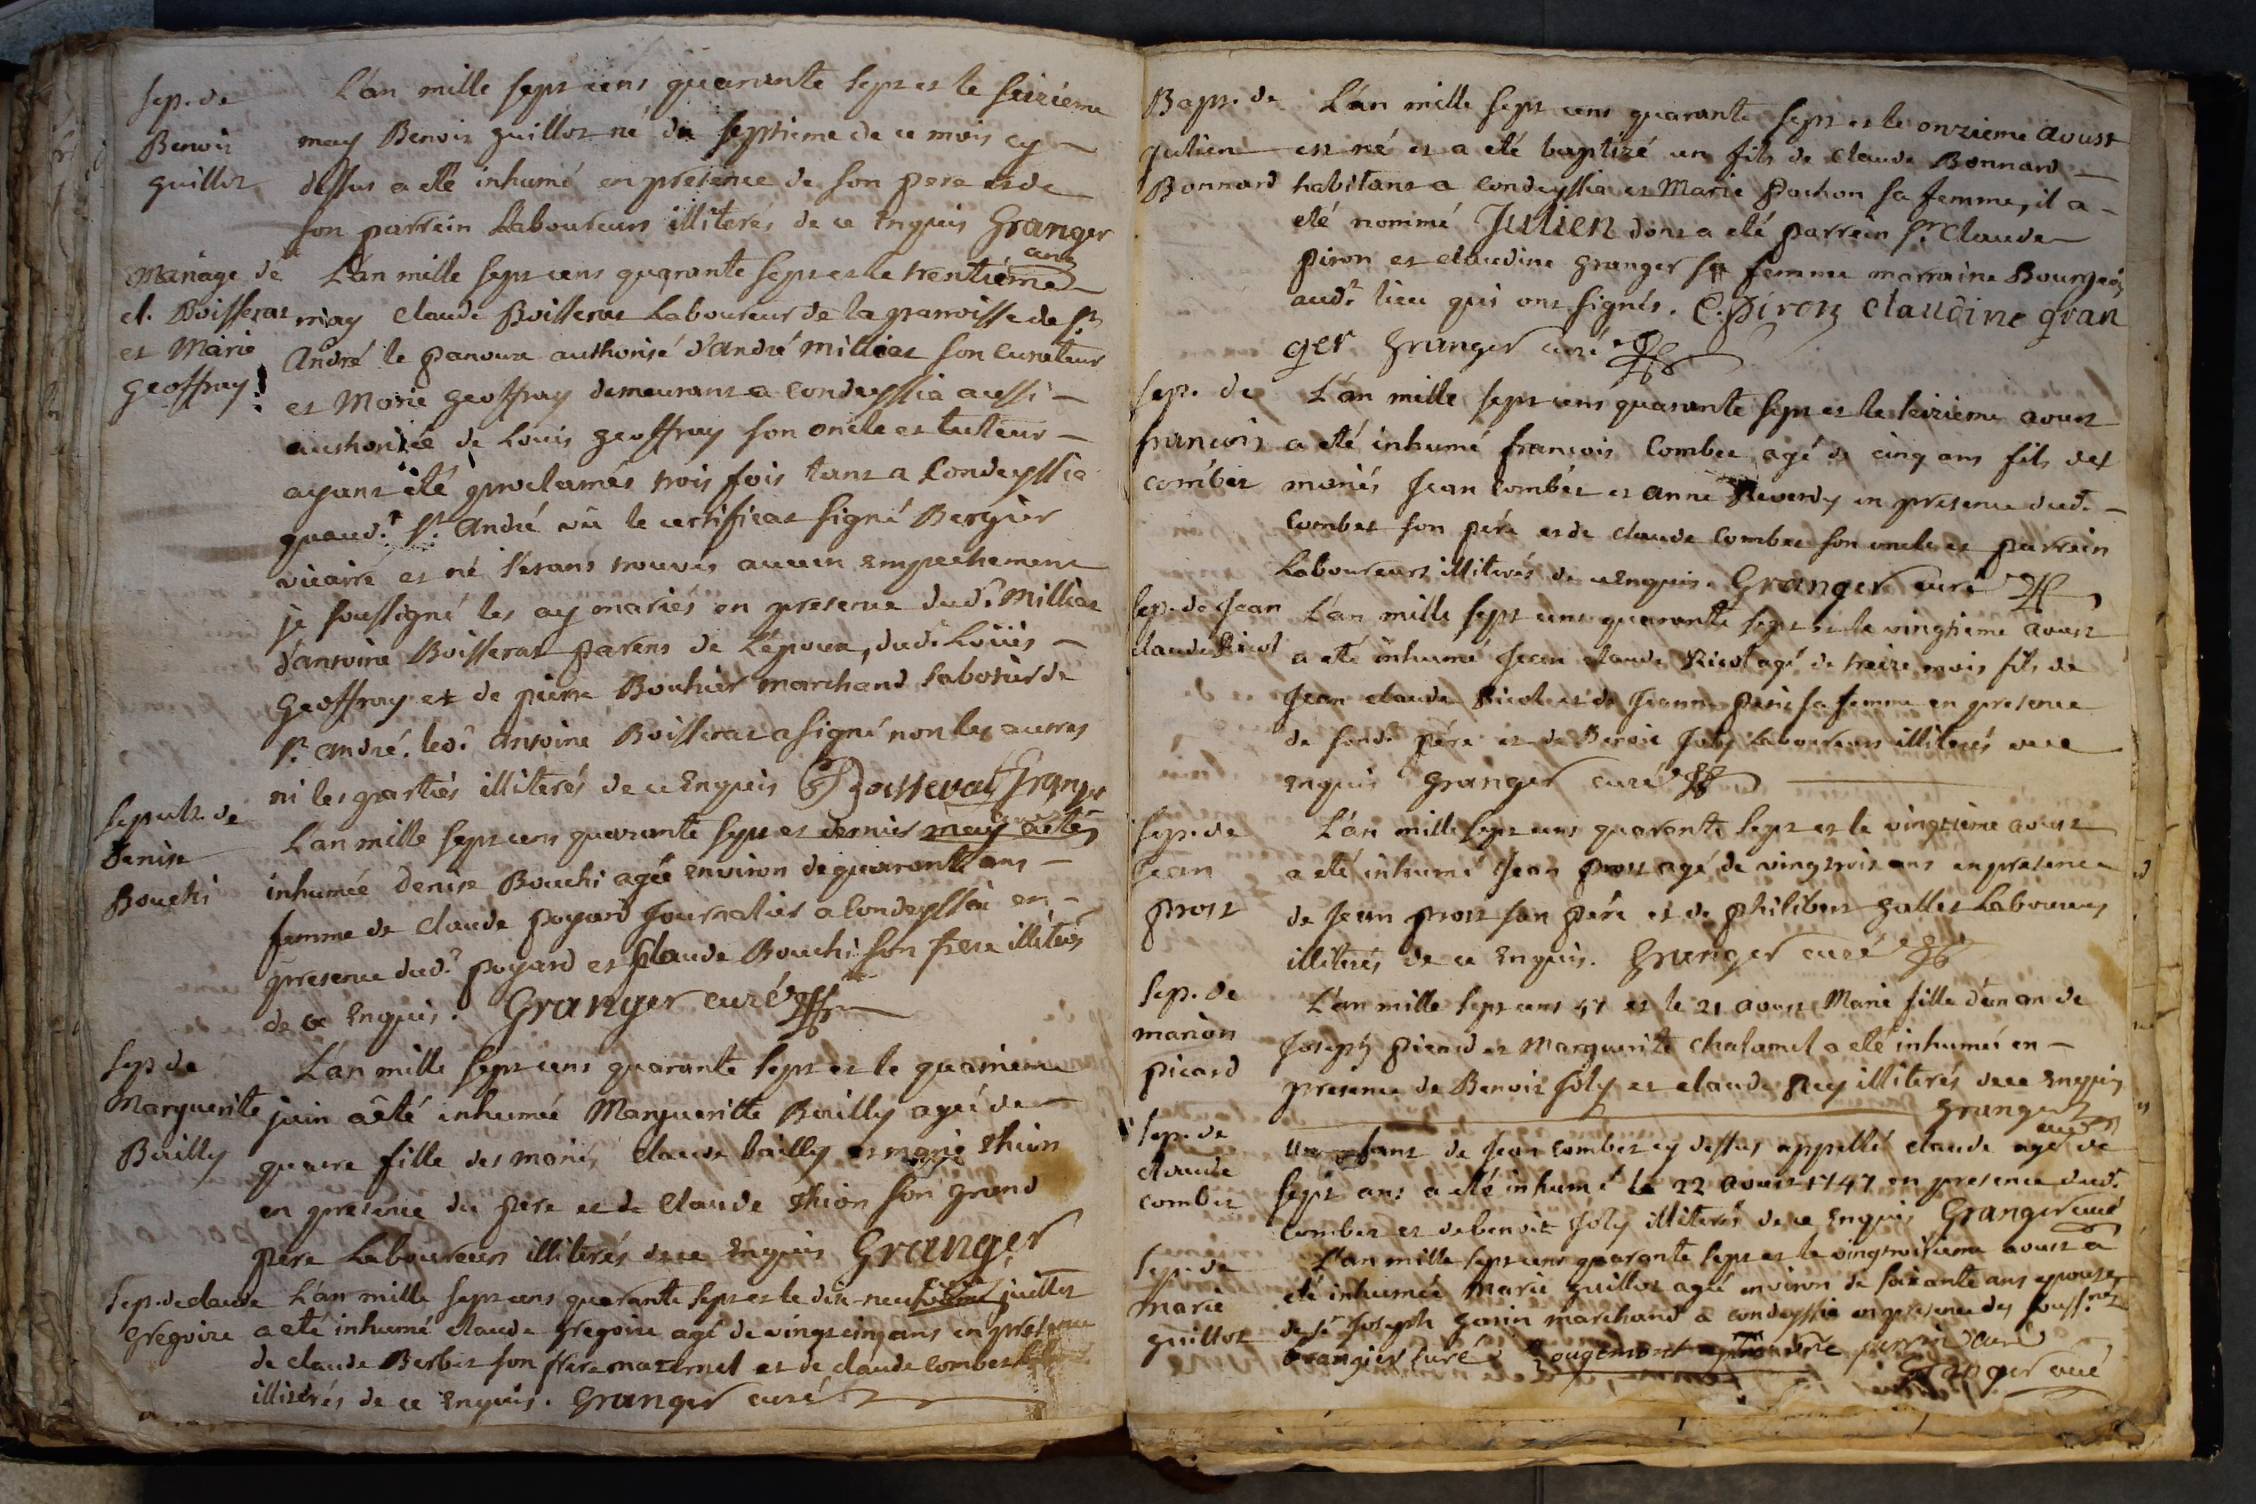 Sep. de
Benoit
guillot
L'an mille sept cens quarante sept et le seizieme
may Benoit guillot né du septieme de ce mois cy
dessus a eté inhumé en presence de son pere et de
son parrein Laboureurs illiterés de ce Enquis Granger
curé
Mariage de
cl. Boisserat
et Marie
geoffray
L'an mille sept cens quarante sept et le trentiéme
may Claude Boisserat Laboureur de la parroisse de St
André le panoux authorisé d'andré milliat son curateur
et Marie geoffray demeurant a Condeyssia aussi
authorisée de Louis geoffray son oncle et tuteur
ayant été proclamés trois fois tant a Condeyssia
quaud.t St. André vû le certificat signé Bergier
vicaire et ne s'etant trouvés aucun Empechement
je soussigné les ay mariés en presence dud.t Milliat
d'antoine Boisserat parens de L'epoux, dud. Loüis
Geoffray et de pierre Bouhier marchand sabotier de
St. André. led.t antoine Boisserat a signé non les autres
ni les parties illiterés de ce Enquis Boisserat Granger
curé
Sepult. de
Denise
Bouchi
L'an mille sept cens quarante sept et dernier may a eté
inhumée Denise Bouchi agée environ de quarante ans
femme de Claude poyard Journalier a Condeyssia en
presence dud.t poyard et Claude Bouchi son frere illiterés
de ce Enquis. Granger curé
Sep. de
Marguerite
Bailly
L'an mille sept cens quarante sept et le quatrieme
juin a été inhumée Margueritte Bailly agée de
quatre fille des mariés Claude bailly et marie Thion
en presence du pere et de Claude Thion son grand
pere Laboureurs illiterés de ce Enquis Granger
curé
Sep. de claude
gregoire
L'an mille sept cens quarante sept et le dix neufvieme juillet
a eté inhumé claude gregoire agé de vingt cinq ans en presence
de claude Berbet son frere maternel et de claude combet
illiterés de ce Enquis. Granger curé
Bapt. de
Julien
Bonnard
L'an mille sept cens quarante sept et le onzieme aoust
est né et a eté baptizé un fils de Claude Bonnard
habitant a Condeyssia et Marie pochon sa femme, il a
eté nommé Julien dont a eté parrein Sr. Claude
piron et claudine Granger sa femme marraine Bourgeois
aud.t lieu qui ont signés. C. piron claudine gran
ger Granger curé
Sep. de
francois
combet
L'an mille sept cens quarante sept et le seizieme aoust
a eté inhumé francois Combet agé de cinq ans fils des
mariés Jean Combet et anne Reverdy en presence dud.t
Combet son pére et de claude Combet son oncle et parrein
Laboureurs illiterés de ce Enquis. Granger curé
Sep. de Jean
claude Ricol
L'an mille sept cens quarante sept et le vingtieme aoust
a eté inhumé Jean claude Ricol agé de treize mois fils de
Jean claude Ricol et de Jeanne peni sa femme en presence
de sond.t pére et de Benoit Joly Laboureurs illiterés de ce
enquis Granger curé
Sep. de
Jean
prost
L'an mille sept cens quarante sept et le vingtieme aoust
a eté inhumé Jean prost agé de vingt trois ans en presence
de Jean prost son pére et de philibert gallet Laboureurs
illiterés de ce Enquis. Granger curé
Sep. de
marion
picard
L'an mille sept cens 47 et le 21 aoust Marie fille d'un an de
Joseph picard et Marguerite Chalumel a eté inhumée en
presence de Benoit Joly et claude Rey illiterés de ce Enquis
Granger
curé
Sep. de
claude
combet
Un enfant de Jean combet cy dessus appellé claude agé de
sept ans a eté inhumé le 22 aoust 1747 en presence dud.t
Combet et de benoit Joly illiterés de ce Enquis Granger curé
Sep. de
Marie
guillot
L'an mille sept cens quarante sept et le vingt troisieme aoust a
eté inhumée Marie guillot agée environ de soixante ans epouse
de sr Joseph gonin marchand a condeyssia en presence des souss.nés
Grangier curé Rougemont
Granger curé